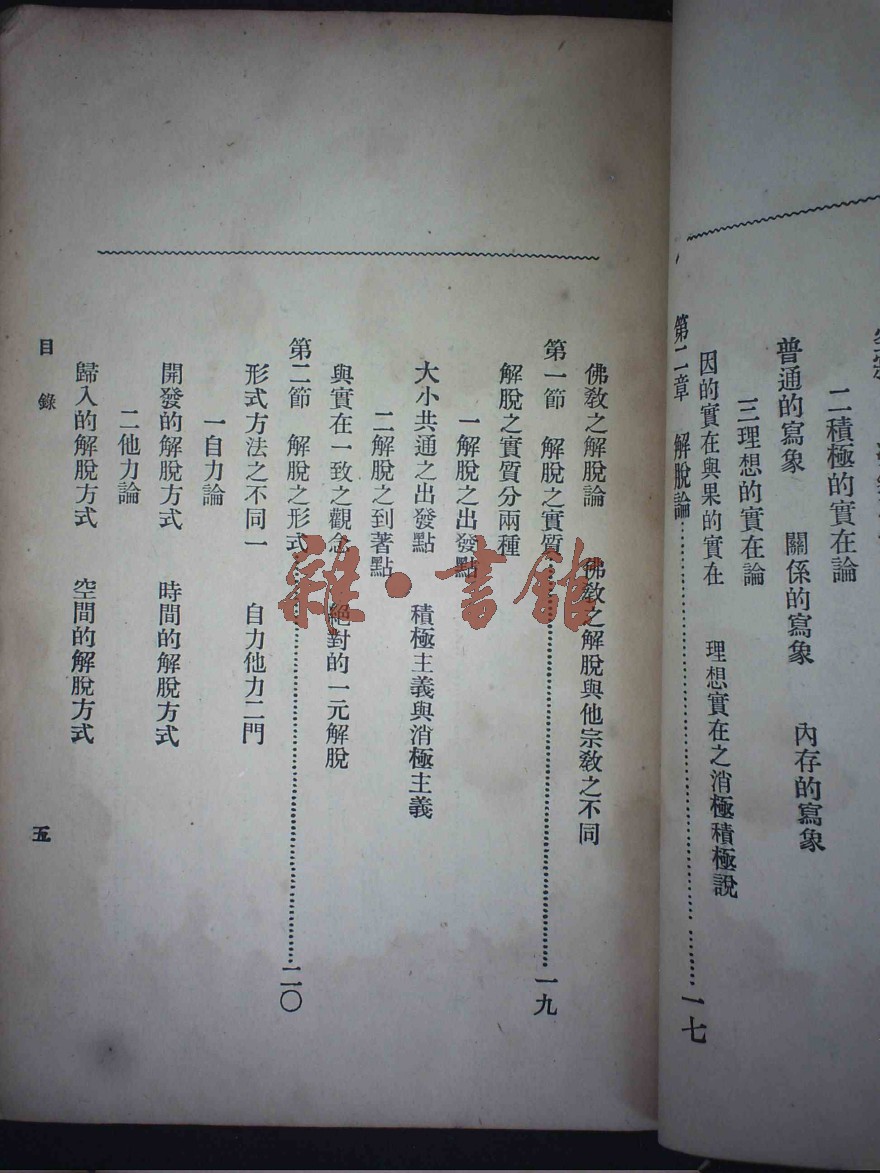 二積極的實在論
普通的寫象　關係的寫象　內存的寫象
三理想的實在論
因的實在與果的實在　理想實在之消極積極說
第二章　解脫論⋯⋯⋯⋯⋯⋯⋯⋯⋯⋯一七
佛教之解脫論　佛教之解脫與他宗教之不同
第一節　解脫之實質⋯⋯⋯⋯⋯⋯⋯⋯⋯⋯一九
解脫之實質分兩種
一解脫之出發點
大小共通之出發點　積極主義與消極主義
二解脫之到著點
與實在一致之觀念　絕對的一元解脫
第二節　解脫之形式⋯⋯⋯⋯⋯⋯⋯⋯⋯⋯二〇
形式方法之不同一　自力他力二門
一自力論
開發的解脫方式　時間的解脫方式
二他力論
歸入的解脫方式　空間的解脫方式
目錄
五
雜·書館